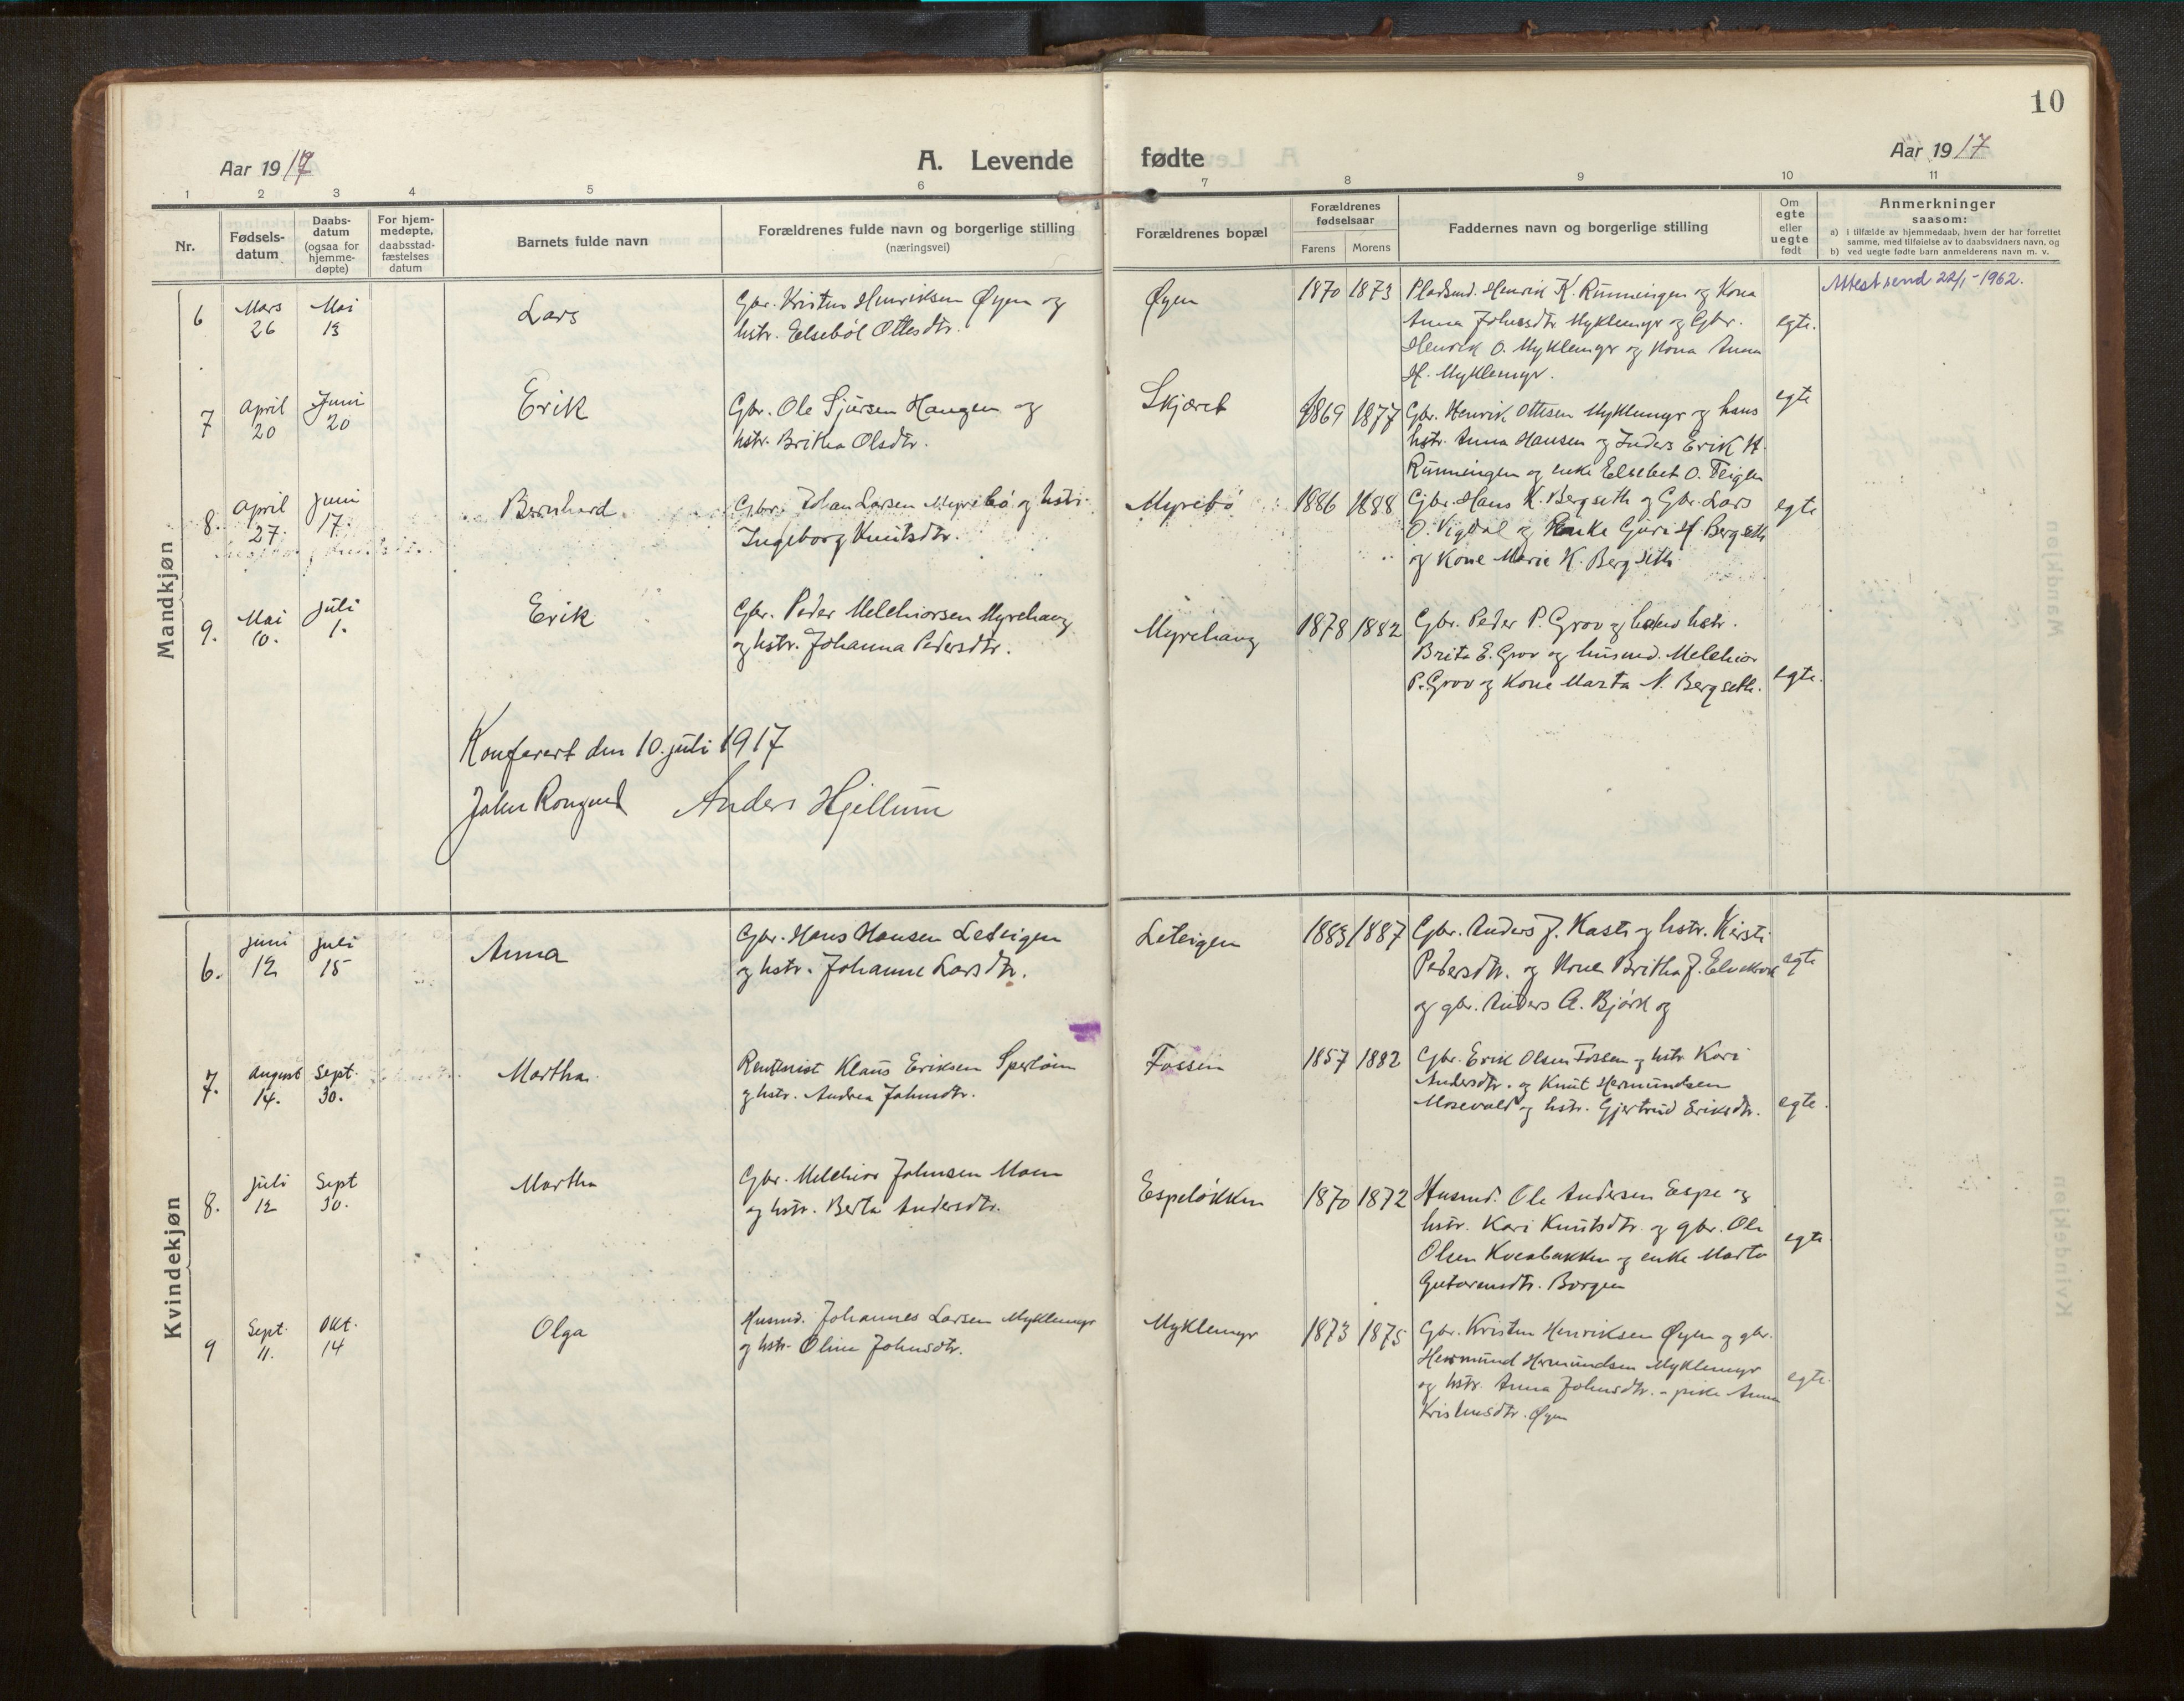 10
Aar 1917
A. Levende fødte
Aar 1917
1 2 3 4 5 6 7 8 9 10 11
Nr.
Fødsels-
datum
Daabs-
datum
(ogsaa for
hjemme-
døpte)
For hjem-
medøpte,
daabsstad-
fæstelses
datum
Barnets fulde navn
Forældrenes fulde navn og borgerlige stilling
(næringsvei)
Forældrenes bopæl
Forældrenes
fødselsaar
Farens Morens
Faddernes navn og borgerlige stilling
Om
egte
eller
uegte
født
Anmerkninger
saasom:
a) i tilfælde av hjemmedaab, hvem der har forrettet
samme, med tilføielse av to daabsvidners navn, og
b) ved uegte fødte barn anmelderens navn m. v.
Mandkjøn
6
Mars
26
Mai
13
Lars
Gbr. Kristen Henriksen Øyen og
hstr. Eelsebøt Ottesdtr.
Øyen
1870 1873
Pladsmd. Henrik K. Rünningen og Kona
Anna Johnsdtr Myklemyr og Gbr.
Henrik O. Myklemyr og Kona Anna
H. Myklemyr.
egte.
Attest send 22/1-1962.
7
April
20
Juni
20
Erik
Gbr. Ole Sjursen Haugen og
hstr. Britha Olsdtr.
Skjæret
1869 1877
Gbr. Henrik Ottesen Myklemyr og hans
hstr. Anna Hansen og Inders Erik H.
Rünningen og enke Elsebet O. Teigen
egte
8.
April
27.
Juni
17.
Bernhard.
Gbr. Johan Larsen Myrebø og hstr.
Ingeborg Knutsdtr.
Myrebø
1886 1888
Gbr. Hans K. Bergseth og Gbr. Lars
O. Vigdal og Enke Guri H Bergseth
og Kone Marie K. Bergseth
egte
9.
Mai
10.
Juli
1.
Erik
Gbr. Peder Melchiorsen Myrehaug
og hstr. Johanna Pedersdtr.
Myrehaug
1878 1882
Gbr. Peder P. Grov og hans hstr.
Brita E. Grov og husmd. Melchior
P. Grov og Kone Marta N. Bergseth.
egte.
Konferert den 10. juli 1917
John Anders Hjellum
Kvindekjøn
6.
Juni
12
Juli
15
Anna
Gbr. Hans Hansen Leteigen
og hstr. Johanne Larsdtr.
Leteigen
1883 1887
Gbr. Anders J. Kasti og hstr. Kirsti
Pedersdtr. og Kone Britha J. Elvekrok
og gbr. Anders A. Bjørk og
egte
7.
August
14.
Sept.
30.
Martha.
Rentenist Klaus Eriksen
og hstr. Andrea Johnsdtr.
Fossen
1857 1882
Gbr. Erik Olsen Fossen og hstr. Kari
Andersdtr. og Knut Hermundsen
Morevald og hstr. Gjertrud Eriksdtr.
egte.
8.
Juli
12
Sept
30.
Martha
Gbr. Melchior Johnsen Moen
og hstr. Berta Andersdtr.
Espeløkken
1870 1872
Husmd. Ole Andersen Espe og
hstr. Kari Knutsdtr. og gbr. Ole
Olsen Kvenbakken og enke Marta
Guttormsdtr. Borgen
egte
9
Sept.
11.
Okt.
14
Olga
Husmd. Johannes Larsen Myklemyr
og hstr. Oline Johnsdtr.
Myklemyr
1873 1875
Gbr. Kristen Henriksen Øyen og gbr.
Hermund Hermundsen Myklemyr
og hstr. Anna Johnsdtr. - pike Anna
Kristensdtr. Øyen
egte.